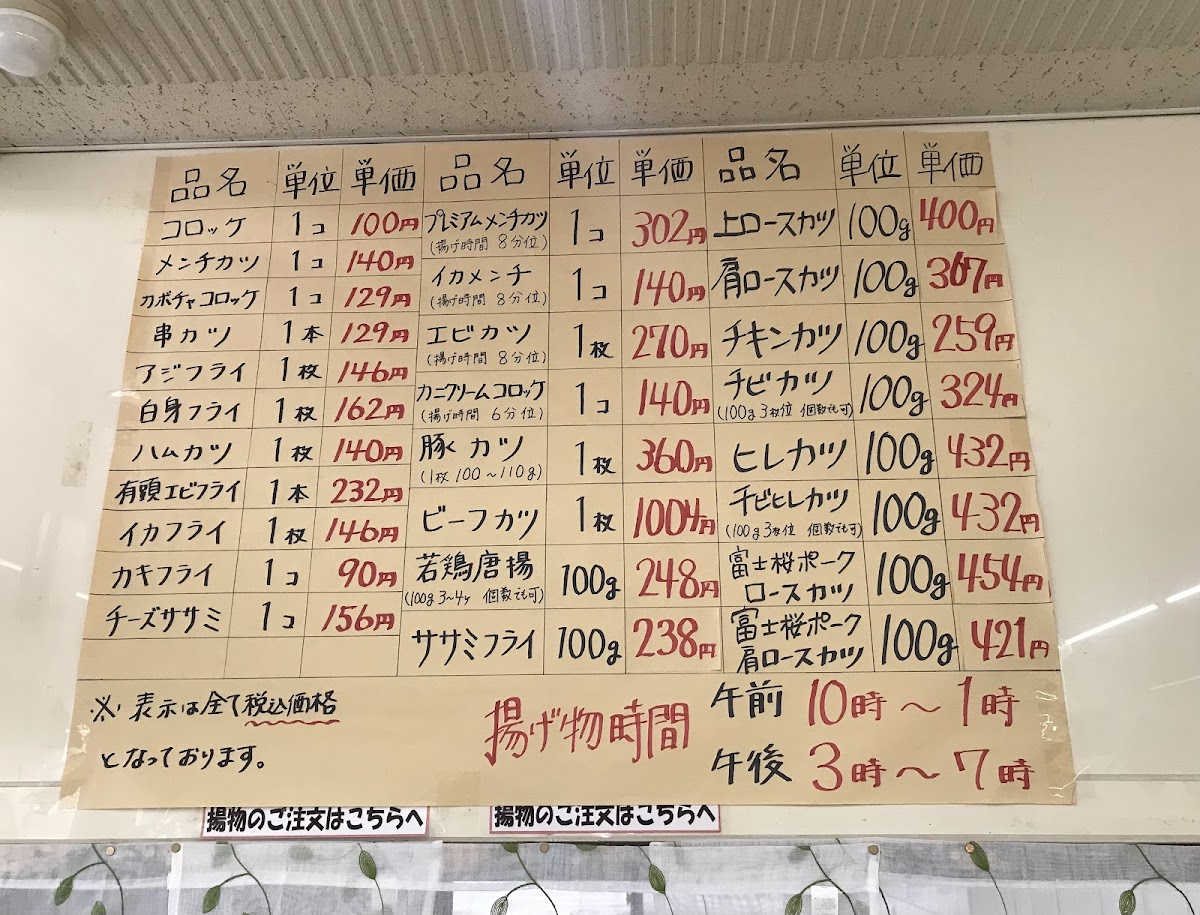 品名 単位 単価
コロッケ 1コ 100円
メンチカツ 1コ 140円
カボチャコロッケ 1コ 129円
串カツ 1本 129円
アジフライ 1枚 146円
白身フライ 1枚 162円
ハムカツ 1枚 140円
有頭エビフライ 1本 232円
イカフライ 1枚 146円
カキフライ 1コ 90円
チーズササミ 1コ 156円
品名 単位 単価
プレミアムメンチカツ 1コ 302円
(揚げ時間 8分位)
イカメンチ 1コ 140円
(揚げ時間 8分位)
エビカツ 1枚 270円
(揚げ時間 8分位)
カニクリームコロッケ 1コ 140円
(揚げ時間 6分位)
豚カツ 1枚 360円
(1枚 100〜110g)
ビーフカツ 1枚 1004円
若鶏唐揚 100g 248円
(100g 3〜4ヶ 個数でも可)
ササミフライ 100g 238円
品名 単位 単価
上ロースカツ 100g 400円
肩ロースカツ 100g 367円
チキンカツ 100g 259円
チビカツ 100g 324円
(100g 3枚位 個数でも可)
ヒレカツ 100g 432円
チビヒレカツ 100g 432円
(100g 3枚位 個数でも可)
富士桜ポーク
ロースカツ 100g 454円
富士桜ポーク
肩ロースカツ 100g 421円
※ 表示は全て税込価格
となっております。
揚げ物時間
午前 10時〜1時
午後 3時〜7時
揚物のご注文はこちらへ
揚物のご注文はこちらへ